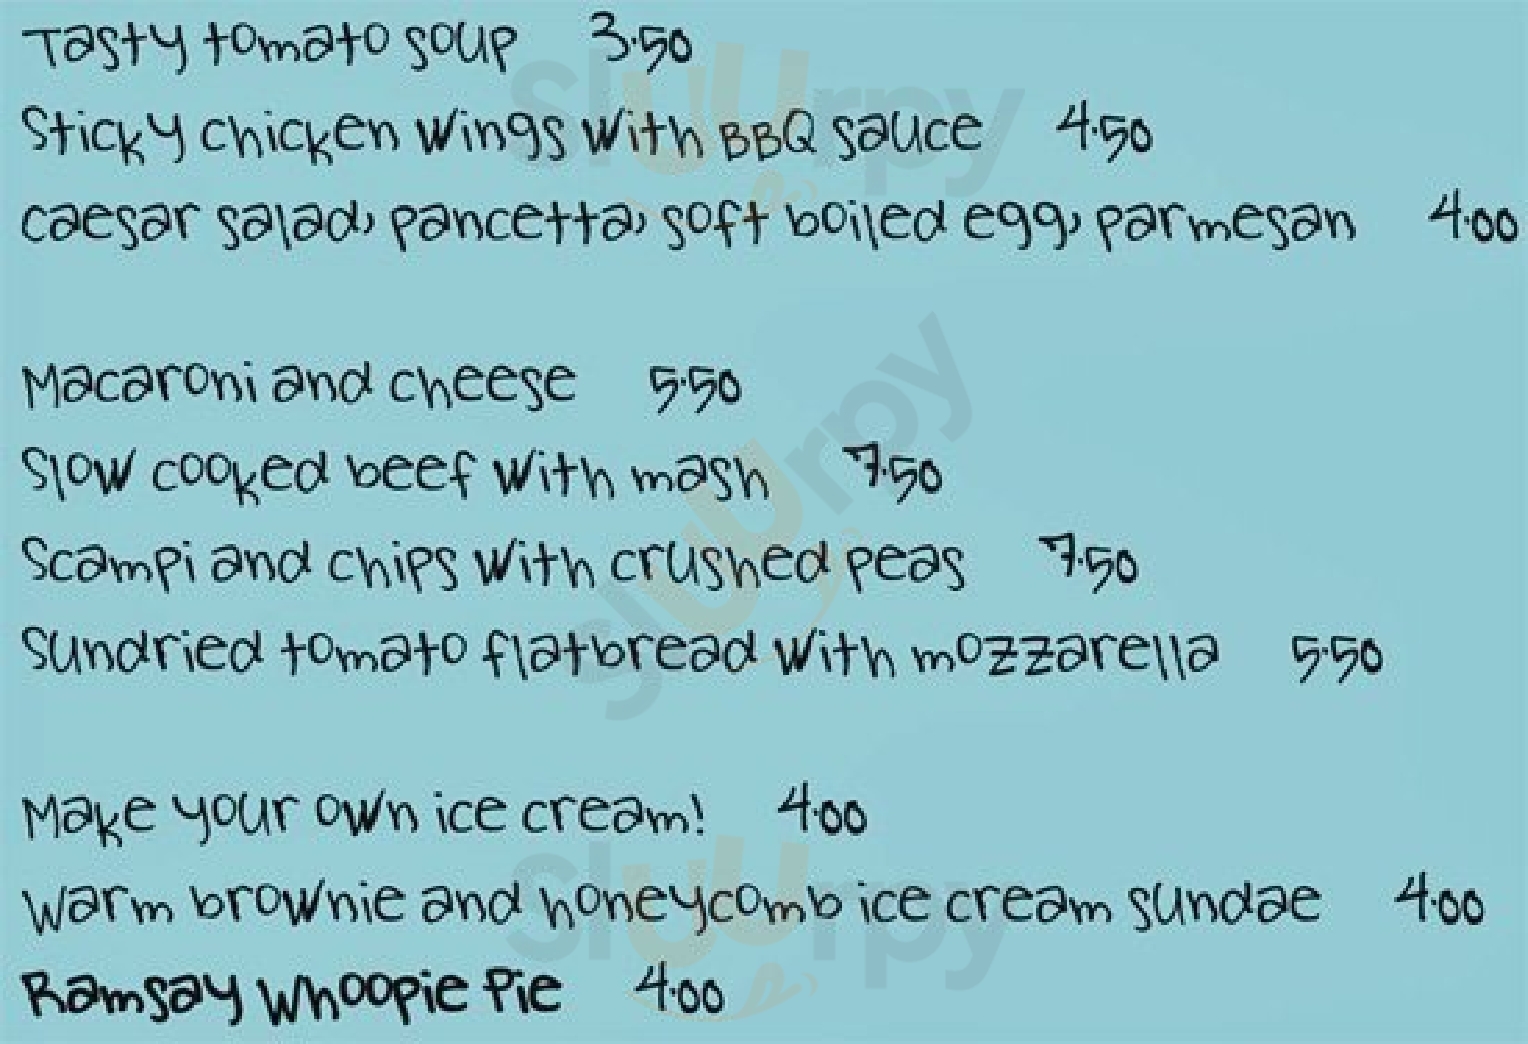 Tasty tomato soup 3.50
Sticky chicken wings with BBQ sauce 4.50
caesar salad, pancetta, soft boiled egg, parmesan 4.00
Macaroni and cheese 5.50
Slow cooked beef with mash 7.50
Scampi and chips with crushed peas 7.50
Sundried tomato flatbread with mozzarella 5.50
Make your own ice cream! 4.00
Warm brownie and honeycomb ice cream sundae 4.00
Ramsay Whoopie Pie 4.00
sluurpy
sluurpy
sluurpy